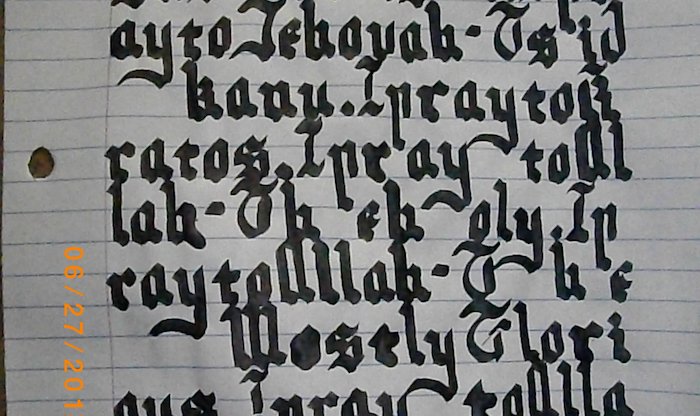 ayto Jehovah-Tsid
kanu. I pray to
ratos. I pray to Al
lah-Th eh oly. I p
ray to Allah-Th e
Mostly Glori
ous I pray to Alla
06/27/201